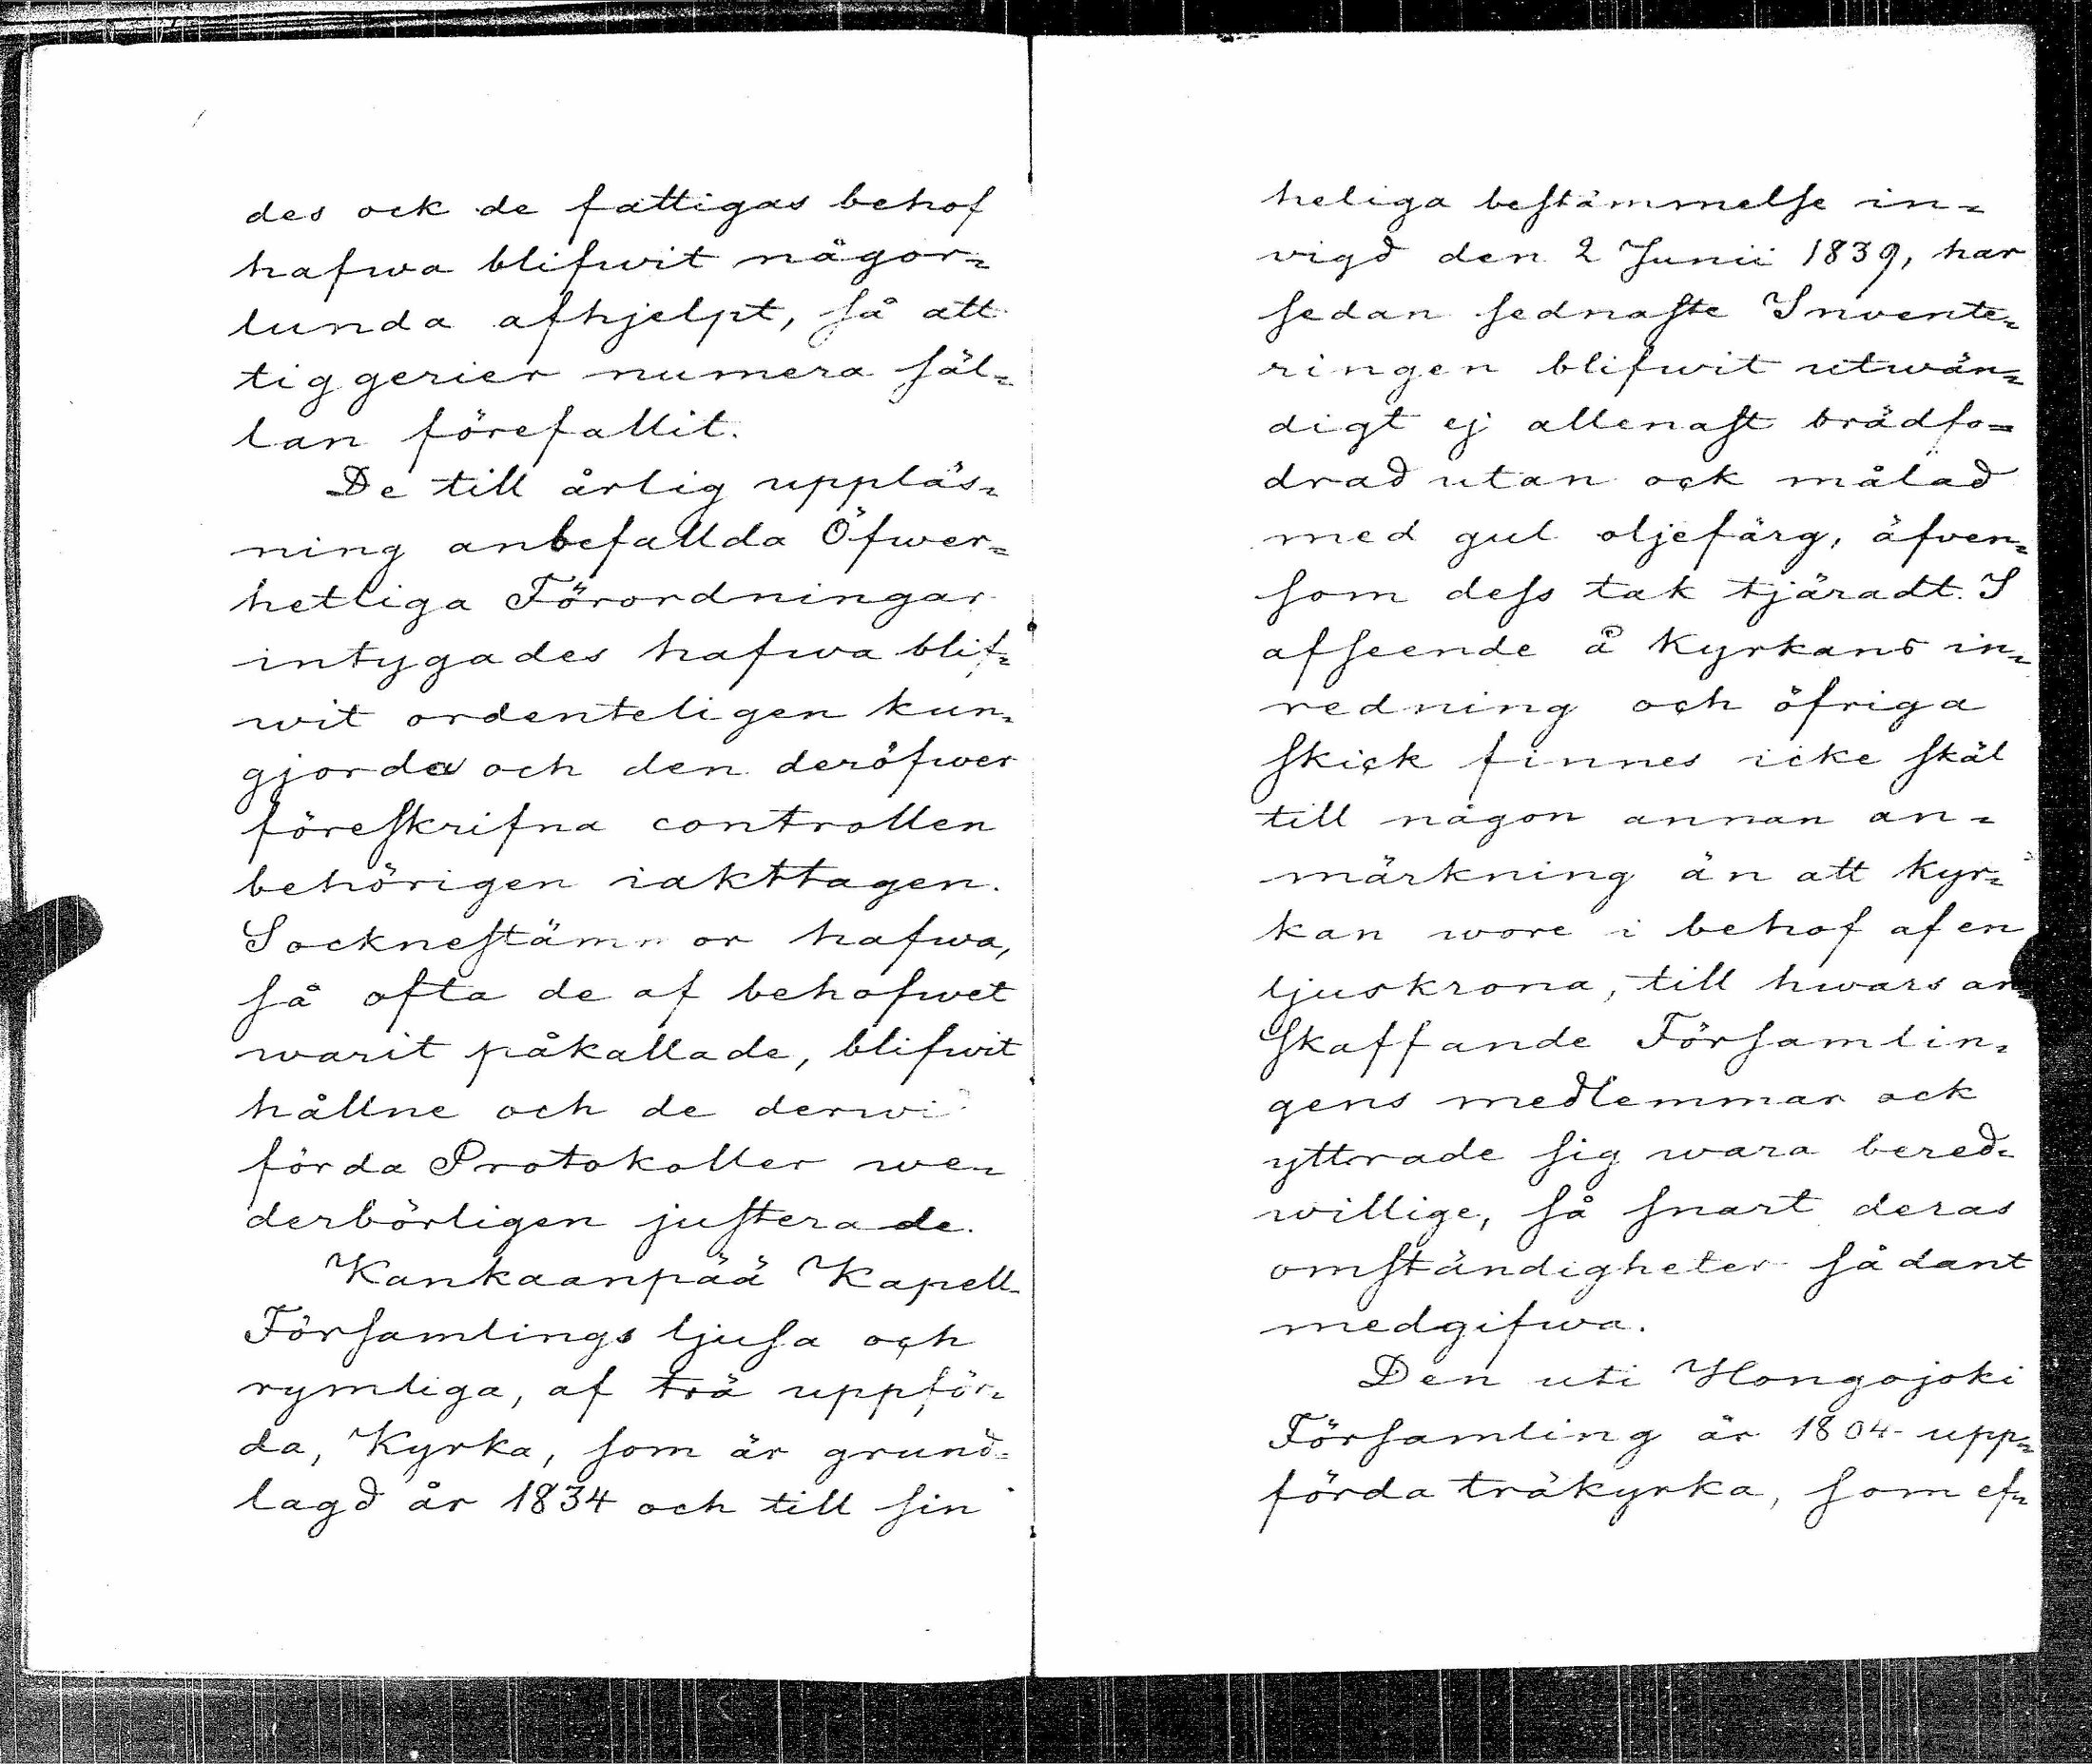 des ock de fattigas behof
hafwa blifwit någor=
lunda afhjelpt, så att
tiggerier numera säl=
lan förefallit.
De till årlig uppläs=
ning anbefallda Öfwer=
hetliga Förordningar
intygades hafwa blif=
wit ordenteligen kun=
gjorda och den deröfwer
föreskrifna controllen
behörigen iakttagen.
Socknestämmor hafwa,
så ofta de af behofwet
warit påkallade, blifwit
hållne och de derwi
förda Protokoller we=
derbörligen justerade.
Kankaanpää Kapell-
Församlings ljusa och
rymliga, af trä uppför=
da, Kyrka, som är grund=
lagd år 1834 och till sin
heliga bestämmelse in=
vigd den 2 Junii 1839, har
sedan sednaste Invente=
ringen blifwit utwän=
digt ej allenast brädfo=
drad utan ock målad
med gul oljefärg, äfven=
som dess tak tjäradt. I
afseende å Kyrkans in=
redning och öfriga
skick finnes icke skäl
till någon annan an=
märkning än att Kyr=
kan wore i behof af en
ljuskrona, till hwars an=
skaffande Församlin=
gens medlemmar ock
yttrade sig wara bered=
willige, så snart deras
omständigheter sådant
medgifwa.
Den uti Hongojoki
Församling år 1804 upp=
förda träkyrka, som ef=